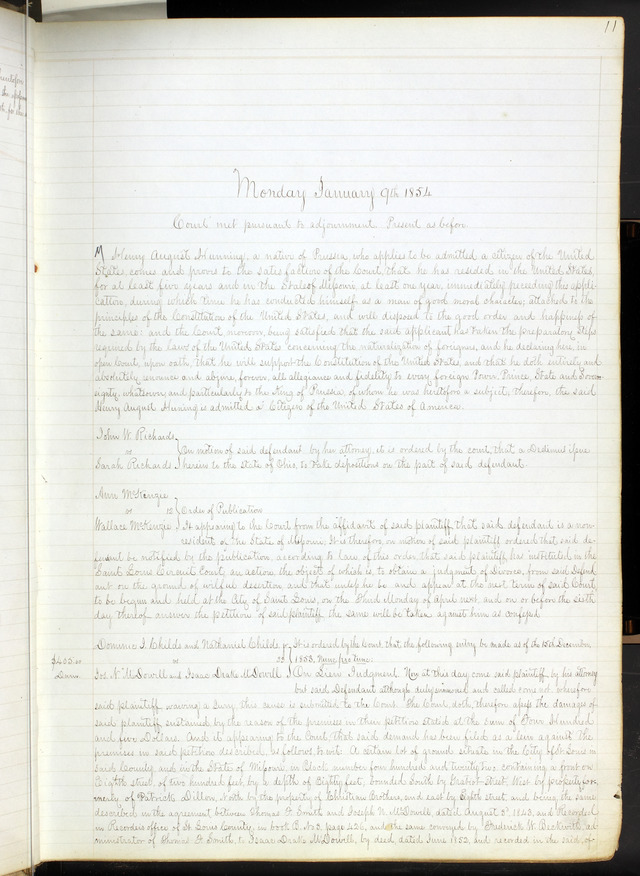 11
Monday January 9th 1854
Court met pursuant to adjournment. Present as before
Henry August Hunning, a native of Prussia, who applies to be admitted a citizen of the United
States comes and proves to the satisfaction of the Court that he has resided in the United States
for at least five years and in the State of Missouri at least one year, immediately preceding this appli-
cation, during which time he has conducted himself as a man of good moral character; attached to the
principles of the Constitution of the United States, and well disposed to the good order and happiness of
the same: and the Court moreover, being satisfied that the said applicant has taken the preparatory steps
required by the laws of the United States concerning the naturalization of foreigners, and he declaring here, in
open Court, upon oath, that he will support the Constitution of the United States, and that he doth entirely and
absolutely renounce and abjure, forever, all allegiance and fidelity to every foreign Power, Prince, State and Sover-
eignty, whatsoever, and particularly to the King of Prussia, of whom he was heretofore a subject, therefore, the said
Henry August Huning is admitted a Citizen of the United States of America.
John W. Richards
vs On motion of said defendant by his attorney, it is ordered by the court, that a Dedimus issue
Sarah Richards herein to the state of Ohio, to take depositions on the part of said defendant.
Ann McKenzie
vs 12 Order of Publication
Wallace McKenzie It appearing to the Court from the affidavit of said plaintiff, that said defendant is a non-
resident of the State of Missouri; It is therefore, on motion of said plaintiff ordered that said de-
fendant be notified by the publication, according to law, of this order, that said plaintiff has instituted in the
Saint Louis Circuit Court, an action, the object of which is, to obtain a judgment of Divorce, from said defend-
ant on the ground of willful desertion and that unless he be and appear at the next term of said Court,
to be begun and held at the City of Saint Louis, on the Third Monday of April next, and on or before the sixth
day thereof answer the petition of said plaintiff the same will be taken against him as confessed
Dominic J. Childs and Nathaniel Childs jr It is ordered by the Court that the following entry be made as of the 15th December
$405.00 vs 23 1853, Nunc pro tunc.
Jos. N. McDowell and Isaac Drake McDowell On Lien Judgment. Now at this day come said plaintiff, by his attorney
but said Defendant although duly summoned and called come not, wherefore
said plaintiff waiving a Jury this cause is submitted to the Court. The Court, doth, therefore assess the damages of
said plaintiff sustained by the reason of the premises in their petition stated at the sum of Four Hundred
and five Dollars. And it appearing to the Court that said demand has been filed as a lien against the
premises in said petition described, as follows to wit: A certain lot of ground situate in the City of St Louis in
said County, and in the State of Missouri, in Block number four hundred and twenty two, containing a front on
Eighth street, of two hundred feet, by a depth of Eighty feet, bounded South by Street, West by property for-
merly of Patrick Dillon, North by the property of Christian Brothers, and east by Eighth street, and being the same
described in the agreement between Thomas F. Smith and Joseph N. McDowell dated August 3d, 1843, and Recorded
in Recorders office of St Louis County, in book B. No 3. page 426, and the same conveyed by Frederick W. Beckwith, ad-
ministrator of Thomas F. Smith, to Isaac Drake McDowell, by deed dated June 1853, and recorded in the said, of-